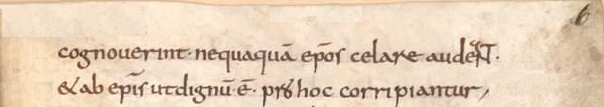 6
cognoverint· nequaquā ep̄os celare audeNT·
& ab ep̄is ut dignū· ē· hoc corripiantur,